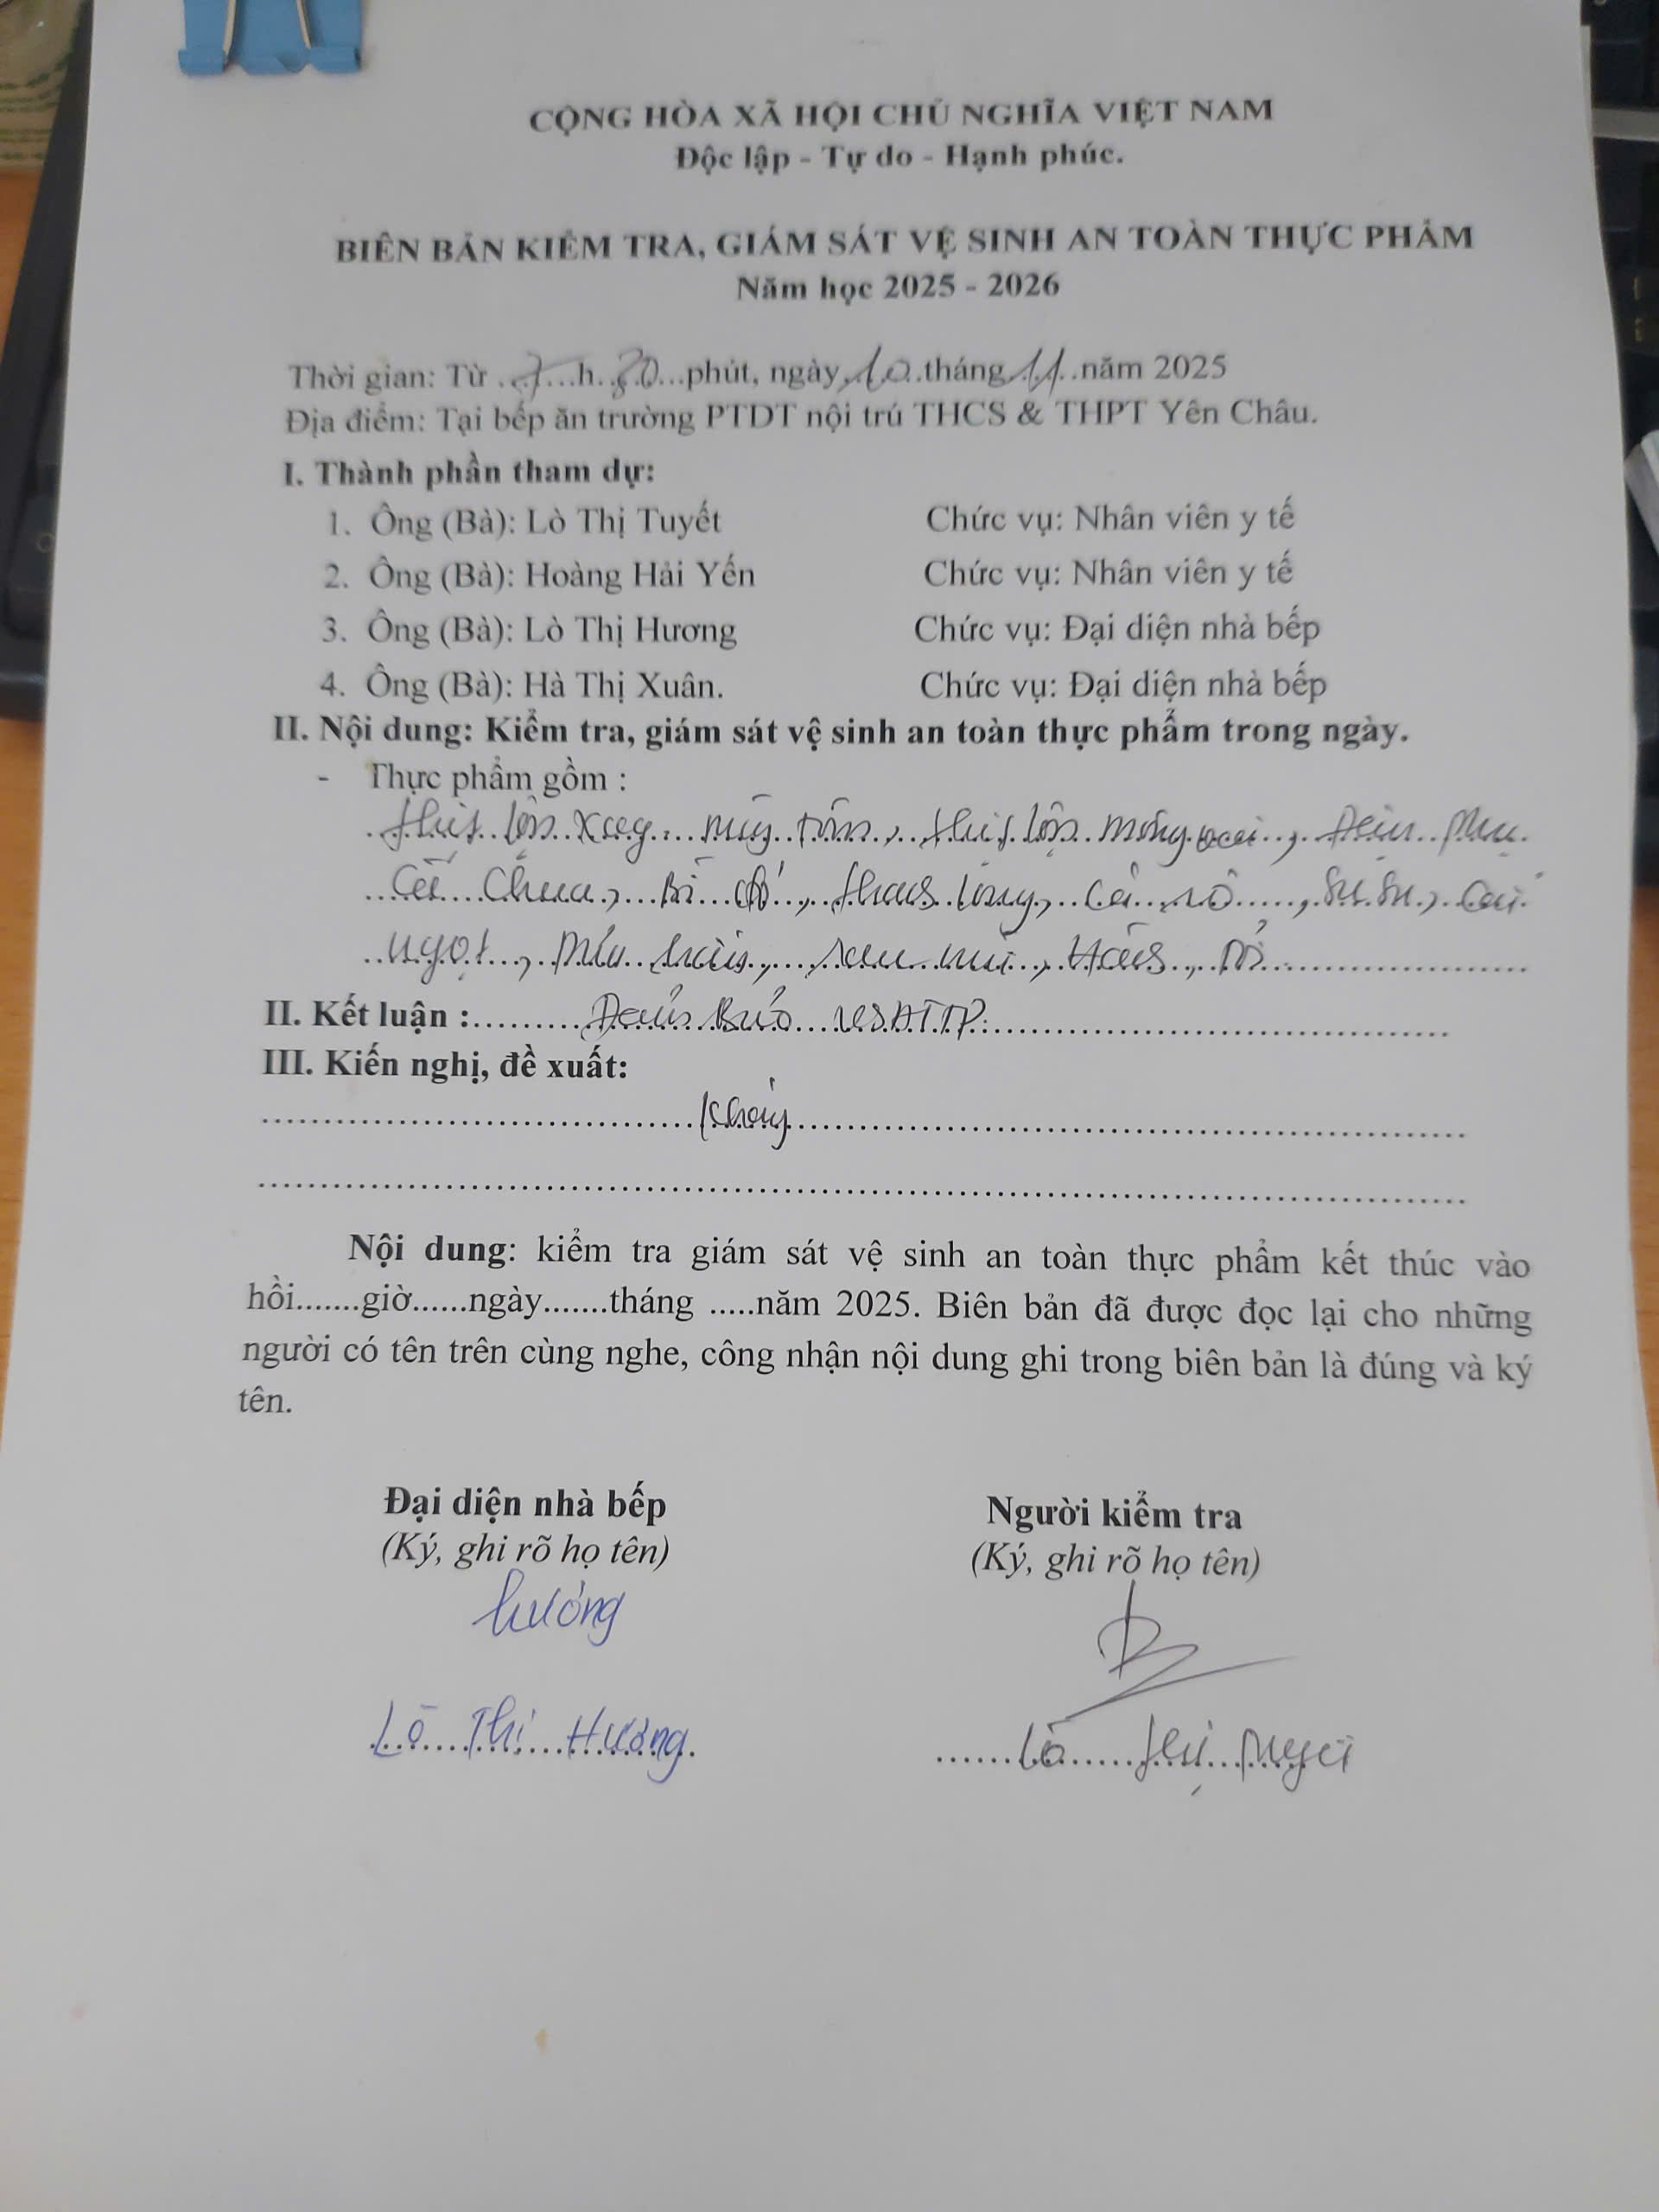 CỘNG HÒA XÃ HỘI CHỦ NGHĨA VIỆT NAM
Độc lập - Tự do - Hạnh phúc.
BIÊN BẢN KIỂM TRA, GIÁM SÁT VỆ SINH AN TOÀN THỰC PHẨM
Năm học 2025 - 2026
Thời gian: Từ 7 h 30 phút, ngày 10 tháng 11 năm 2025
Địa điểm: Tại bếp ăn trường PTDT nội trú THCS & THPT Yên Châu.
I. Thành phần tham dự:
1. Ông (Bà): Lò Thị Tuyết Chức vụ: Nhân viên y tế
2. Ông (Bà): Hoàng Hải Yến Chức vụ: Nhân viên y tế
3. Ông (Bà): Lò Thị Hương Chức vụ: Đại diện nhà bếp
4. Ông (Bà): Hà Thị Xuân. Chức vụ: Đại diện nhà bếp
II. Nội dung: Kiểm tra, giám sát vệ sinh an toàn thực phẩm trong ngày.
- Thực phẩm gồm :
thịt lợn xay, thịt lợn mông, Đậu phụ
Cà chua, Bí đỏ, Cà rốt, Su su, Cải
ngọt, rau mùi, Hành
II. Kết luận :.........Đảm Bảo VSATTP
III. Kiến nghị, đề xuất:
Không
Nội dung: kiểm tra giám sát vệ sinh an toàn thực phẩm kết thúc vào
hồi.......giờ......ngày.......tháng .....năm 2025. Biên bản đã được đọc lại cho những
người có tên trên cùng nghe, công nhận nội dung ghi trong biên bản là đúng và ký
tên.
Đại diện nhà bếp Người kiểm tra
(Ký, ghi rõ họ tên) (Ký, ghi rõ họ tên)
Hương
Lò Thị Hương Lò Thị Tuyết